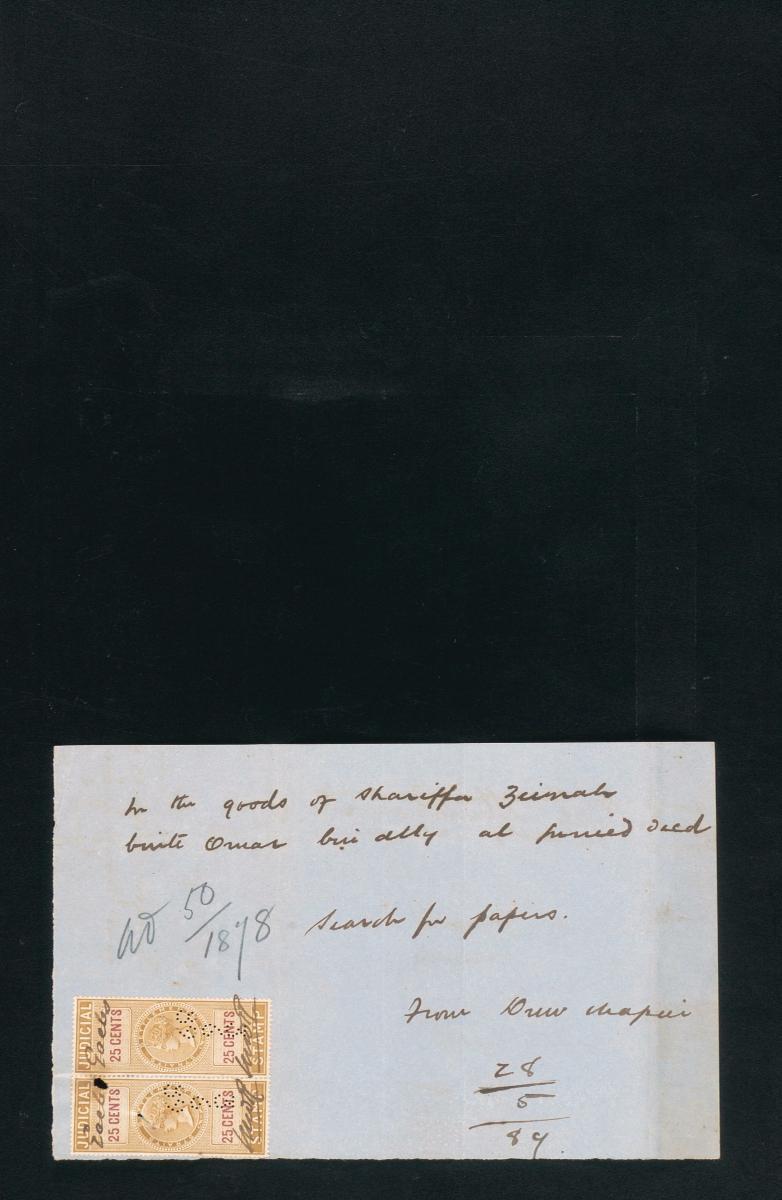 In the goods of Shariffa Zeinah
binte Omar bin Ally al Junied decd
50/1878
Search for papers.
From Drew & Napier
28
5
89
JUDICIAL STAMP
25 CENTS
25 CENTS
JUDICIAL STAMP
25 CENTS
25 CENTS